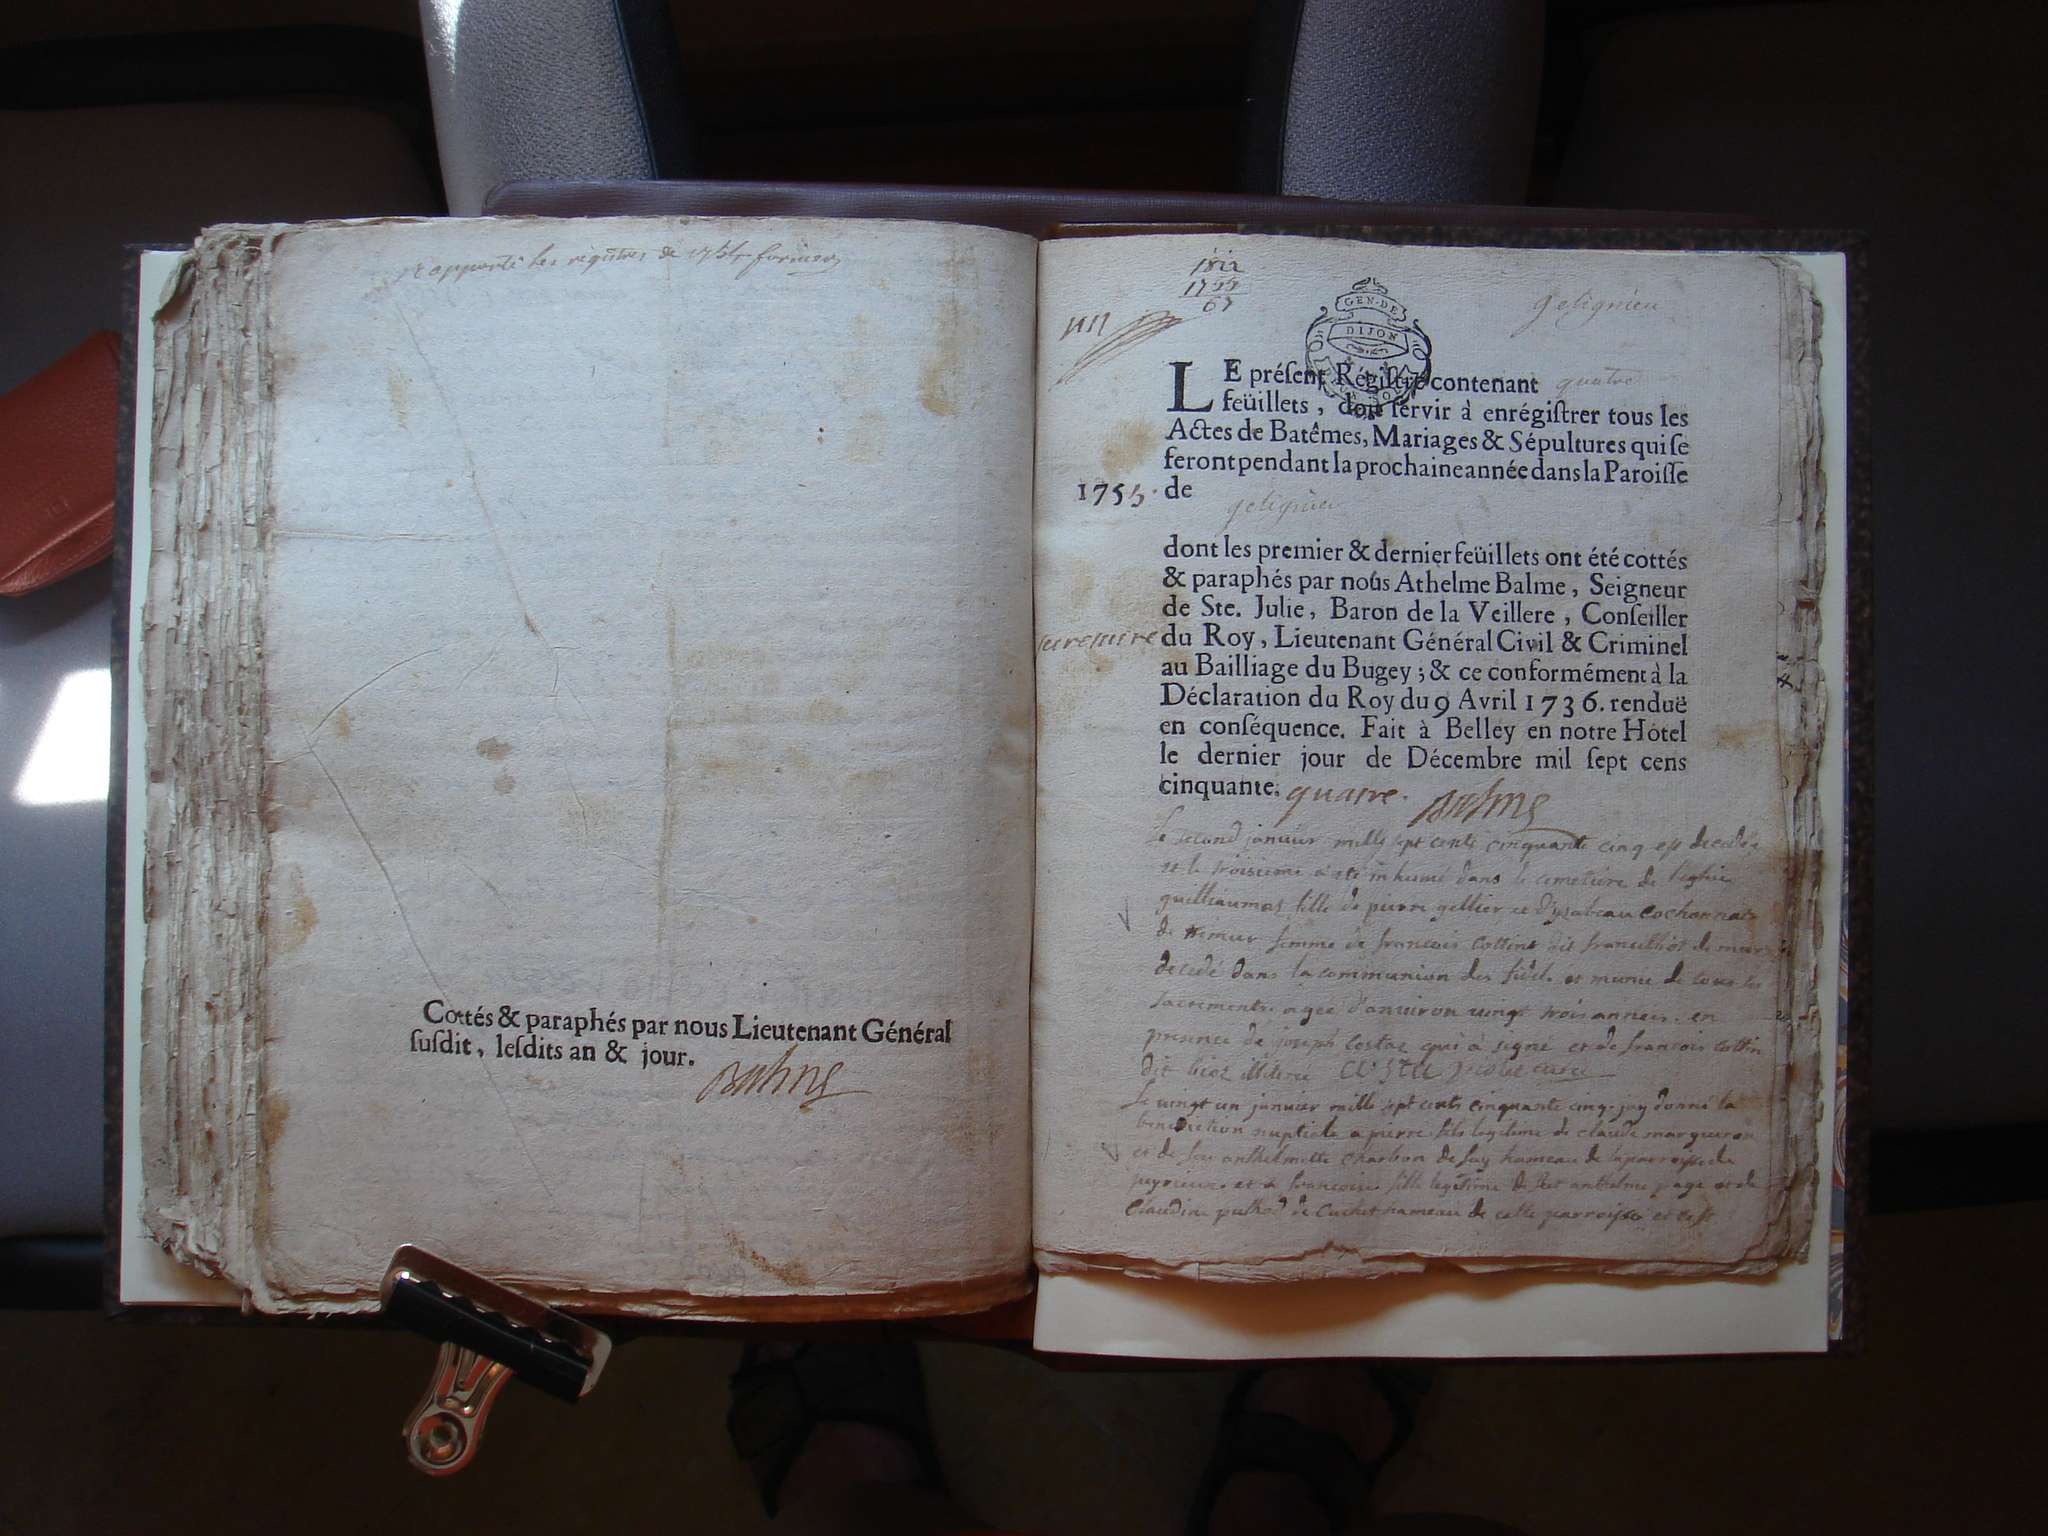 apporté les registres de
Cottés & paraphés par nous Lieutenant Général
suſdit, leſdits an & jour.
Balme
1822
1755
67
GEN·DE
DIJON
gelignieu
LE préſent Régiſtre contenant quatre
feüillets, doit ſervir à enrégiſtrer tous les
Actes de Batêmes, Mariages & Sépultures qui ſe
feront pendant la prochaine année dans la Paroiſſe
1755. de
gelignieu
dont les premier & dernier feüillets ont été cottés
& paraphés par nous Athelme Balme, Seigneur
de Ste. Julie, Baron de la Veillere, Conſeiller
du Roy, Lieutenant Général Civil & Criminel
au Bailliage du Bugey; & ce conformément à la
Déclaration du Roy du 9 Avril 1736. renduë
en conſéquence. Fait à Belley en notre Hôtel
le dernier jour de Décembre mil ſept cens
cinquante. quatre. Balme
Le second janvier mille sept cents cinquante cinq est decedée
et le troisieme a été inhumé dans le cemetiere de l'eglise
fille de pierre gellier et d'ysabeau cochonat
de femme de francois cottin dit de mur
decedé dans la communion des fidel. et munie de tous les
sacrements. agée d'anviron vingt trois années. en
presence de joseph costaz qui a signé et de francois cottin
dit illiteré curé
Le vingt un janvier mille sept cents cinquante cinq. jay donné la
benediction nuptiale a pierre fils legitime de claude marguiron
et de anthelmette charbon de fay hameau de la parroisse de
peyrieux. et a francoise fille legitime de anthelme page et de
Claudine de Cuchet hameau de cette parroisse et cest